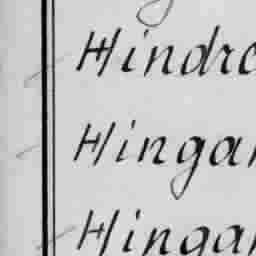 Hindro
Hingar
Hingar